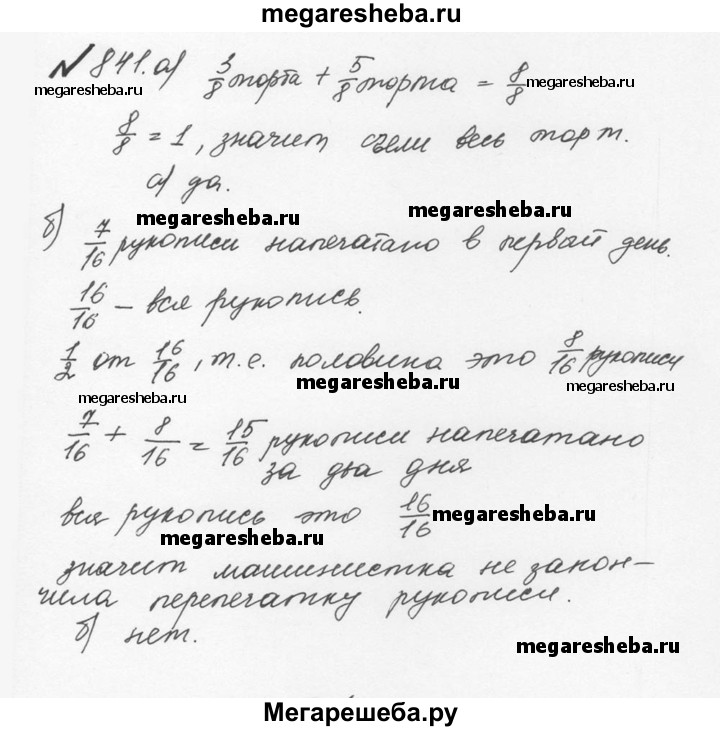 megaresheba.ru
№ 841. а) 3/8 торта + 5/8 торта = 8/8
megaresheba.ru megaresheba.ru megaresheba.ru
8/8 = 1, значит съели весь торт.
а) да.
megaresheba.ru megaresheba.ru
б) 7/16 рукописи напечатано в первый день.
16/16 – вся рукопись.
1/2 от 16/16, т.е. половина это 8/16 рукописи
megaresheba.ru megaresheba.ru megaresheba.ru
7/16 + 8/16 = 15/16 рукописи напечатано
за два дня
вся рукопись это 16/16
megaresheba.ru
megaresheba.ru
значит машинистка не закон-
чила перепечатку рукописи.
б) нет.
megaresheba.ru
Мегарешеба.ру